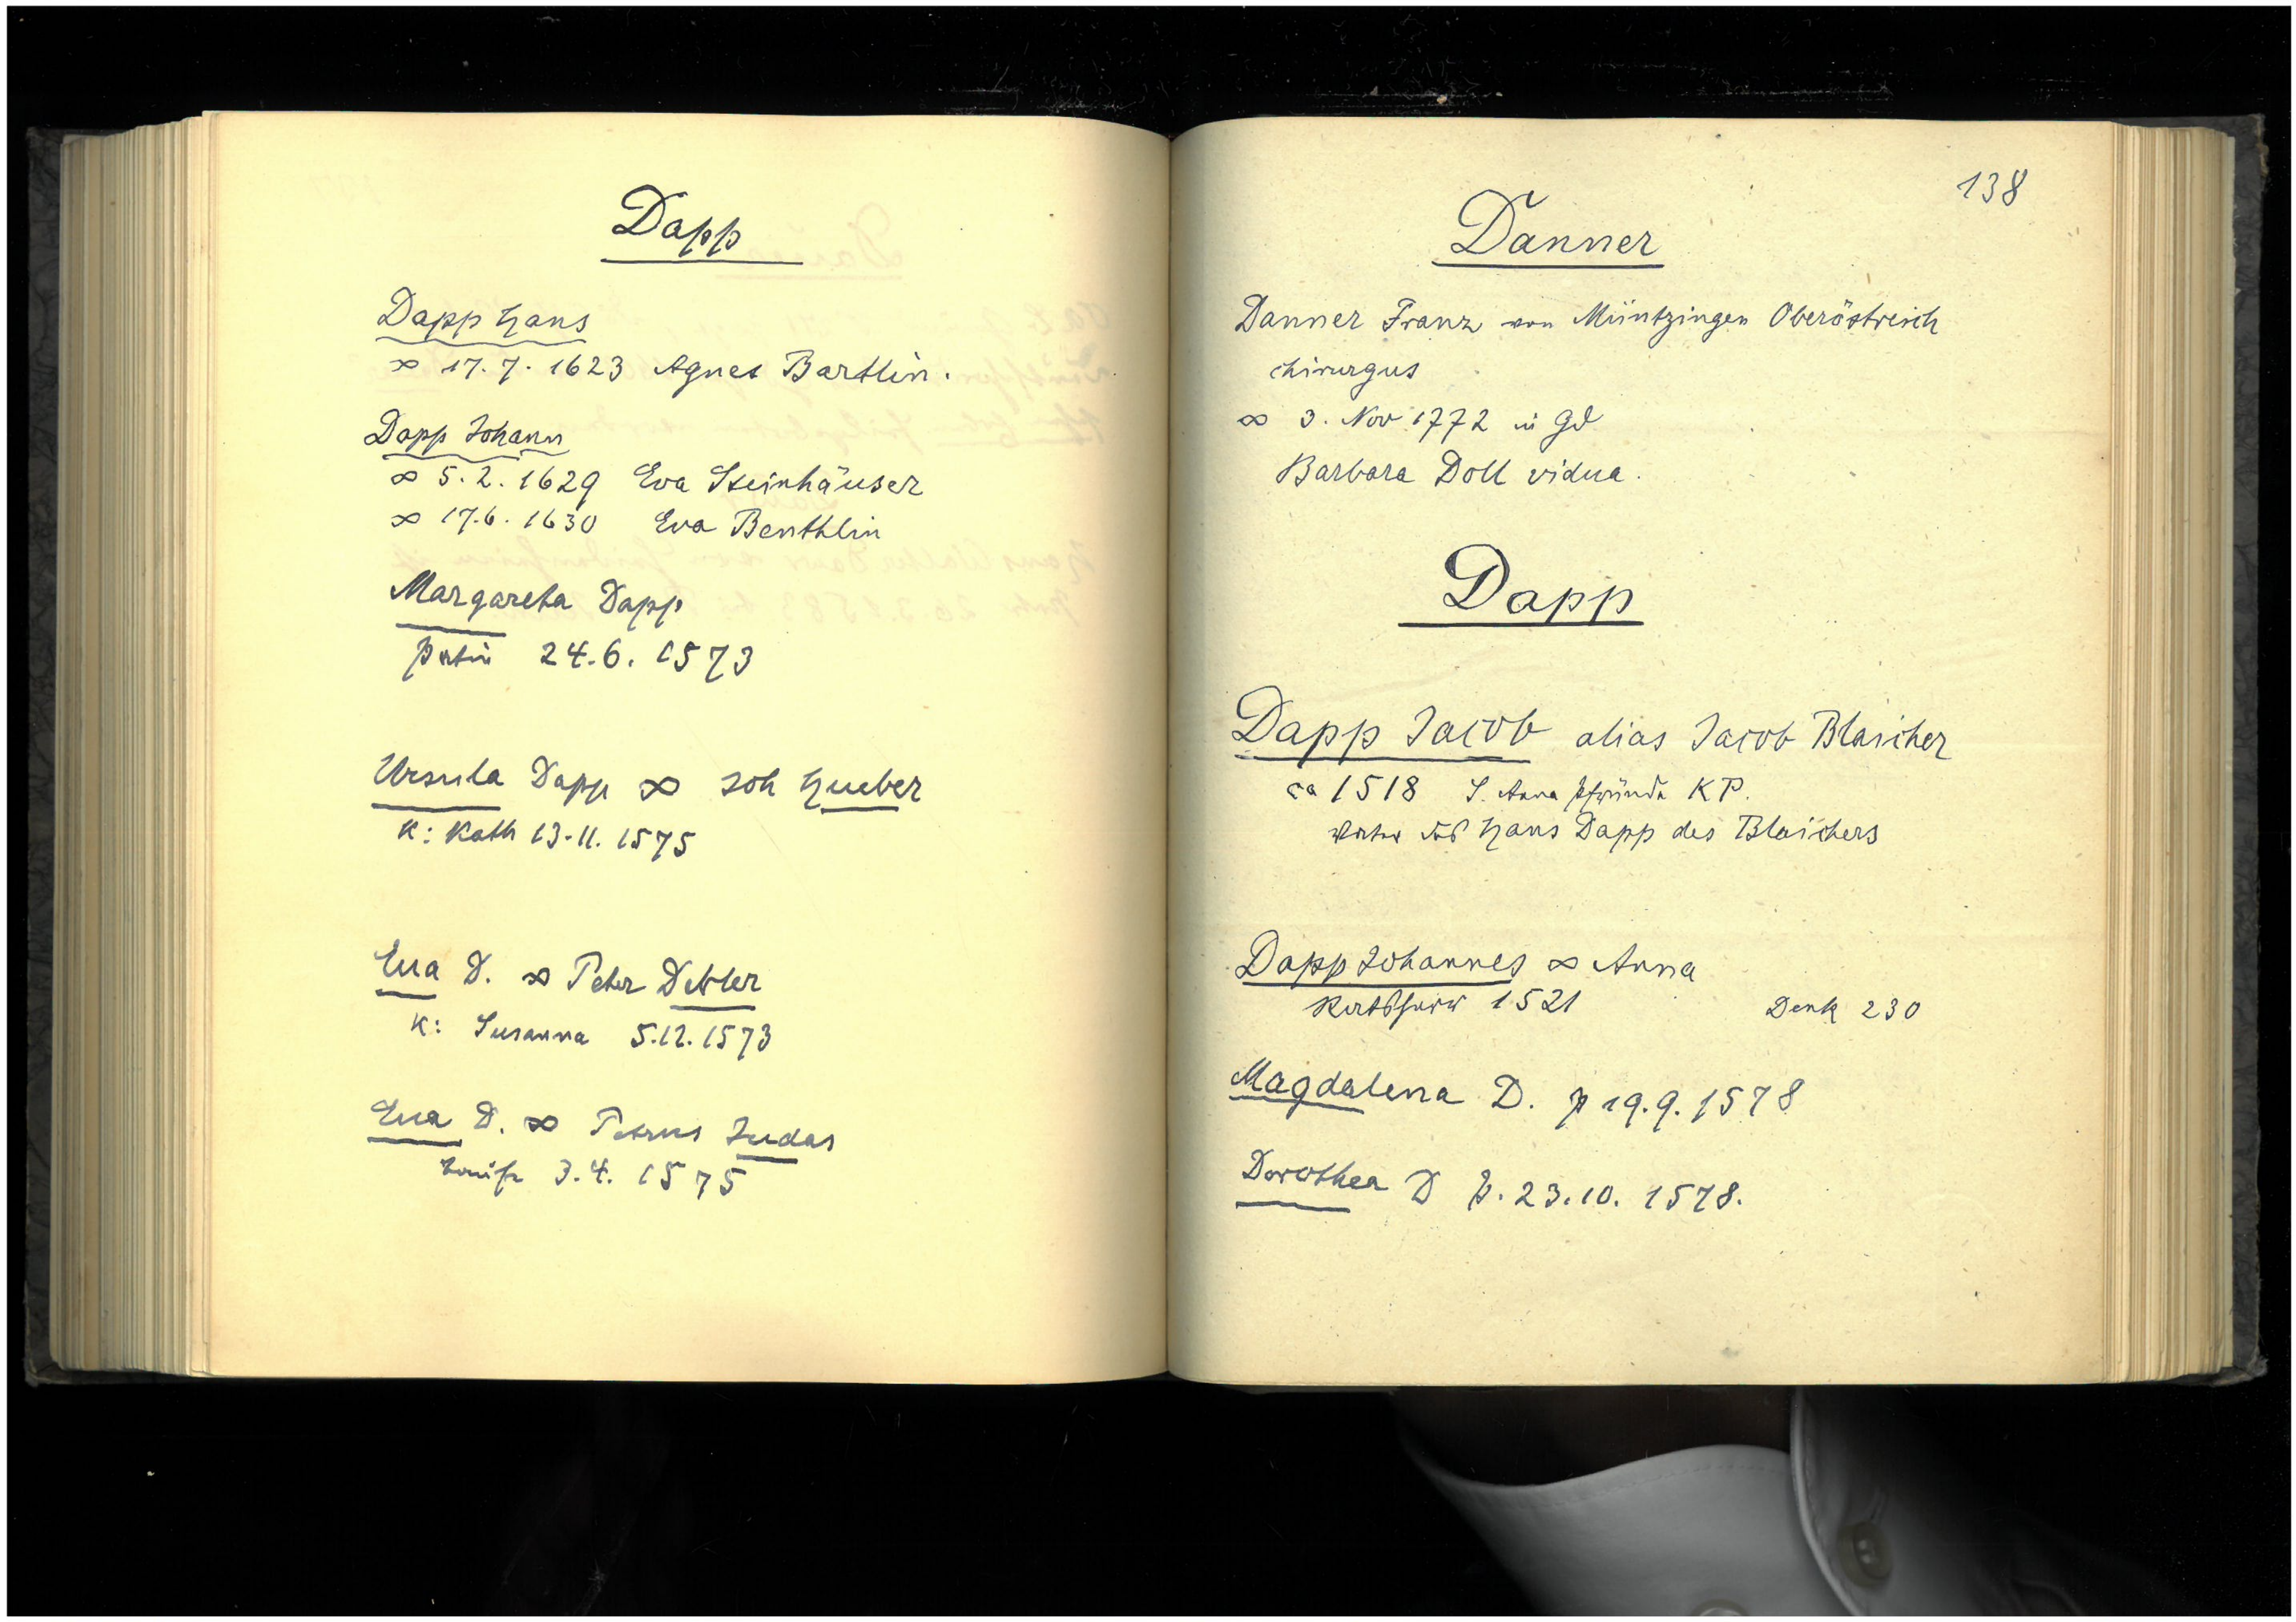 Dapp
Dapp Hans
∞ 17.7.1623 Agnes Bartlin.
Dapp Johann
∞ 5.2.1629 Eva Steinhäuser
∞ 17.6.1630 Eva Benthlin
Margareta Dapp
patin 24.6.1573
Ursula Dapp ∞ Joh Hueber
K: Kath 13.11.1575
Eva D. ∞ Peter Detler
K: Susanna 5.12.1573
Eva D. ∞ Petrus Judas
3.4.1575
138
Danner
Danner Franz von Müntzingen Oberöstreich
chirurgus
∞ 3. Nov 1772 in Gd
Barbara Doll vidua.
Dapp
Dapp Jacob alias Jacob Blaicher
ca 1518 S. Anna Pfründe KP.
Vater des Hans Dapp des Blaichers
Dapp Johannes ∞ Anna
Ratsherr 1521 Denk 230
Magdalena D. p 19.9.1578
Dorothea D p. 23.10.1578.